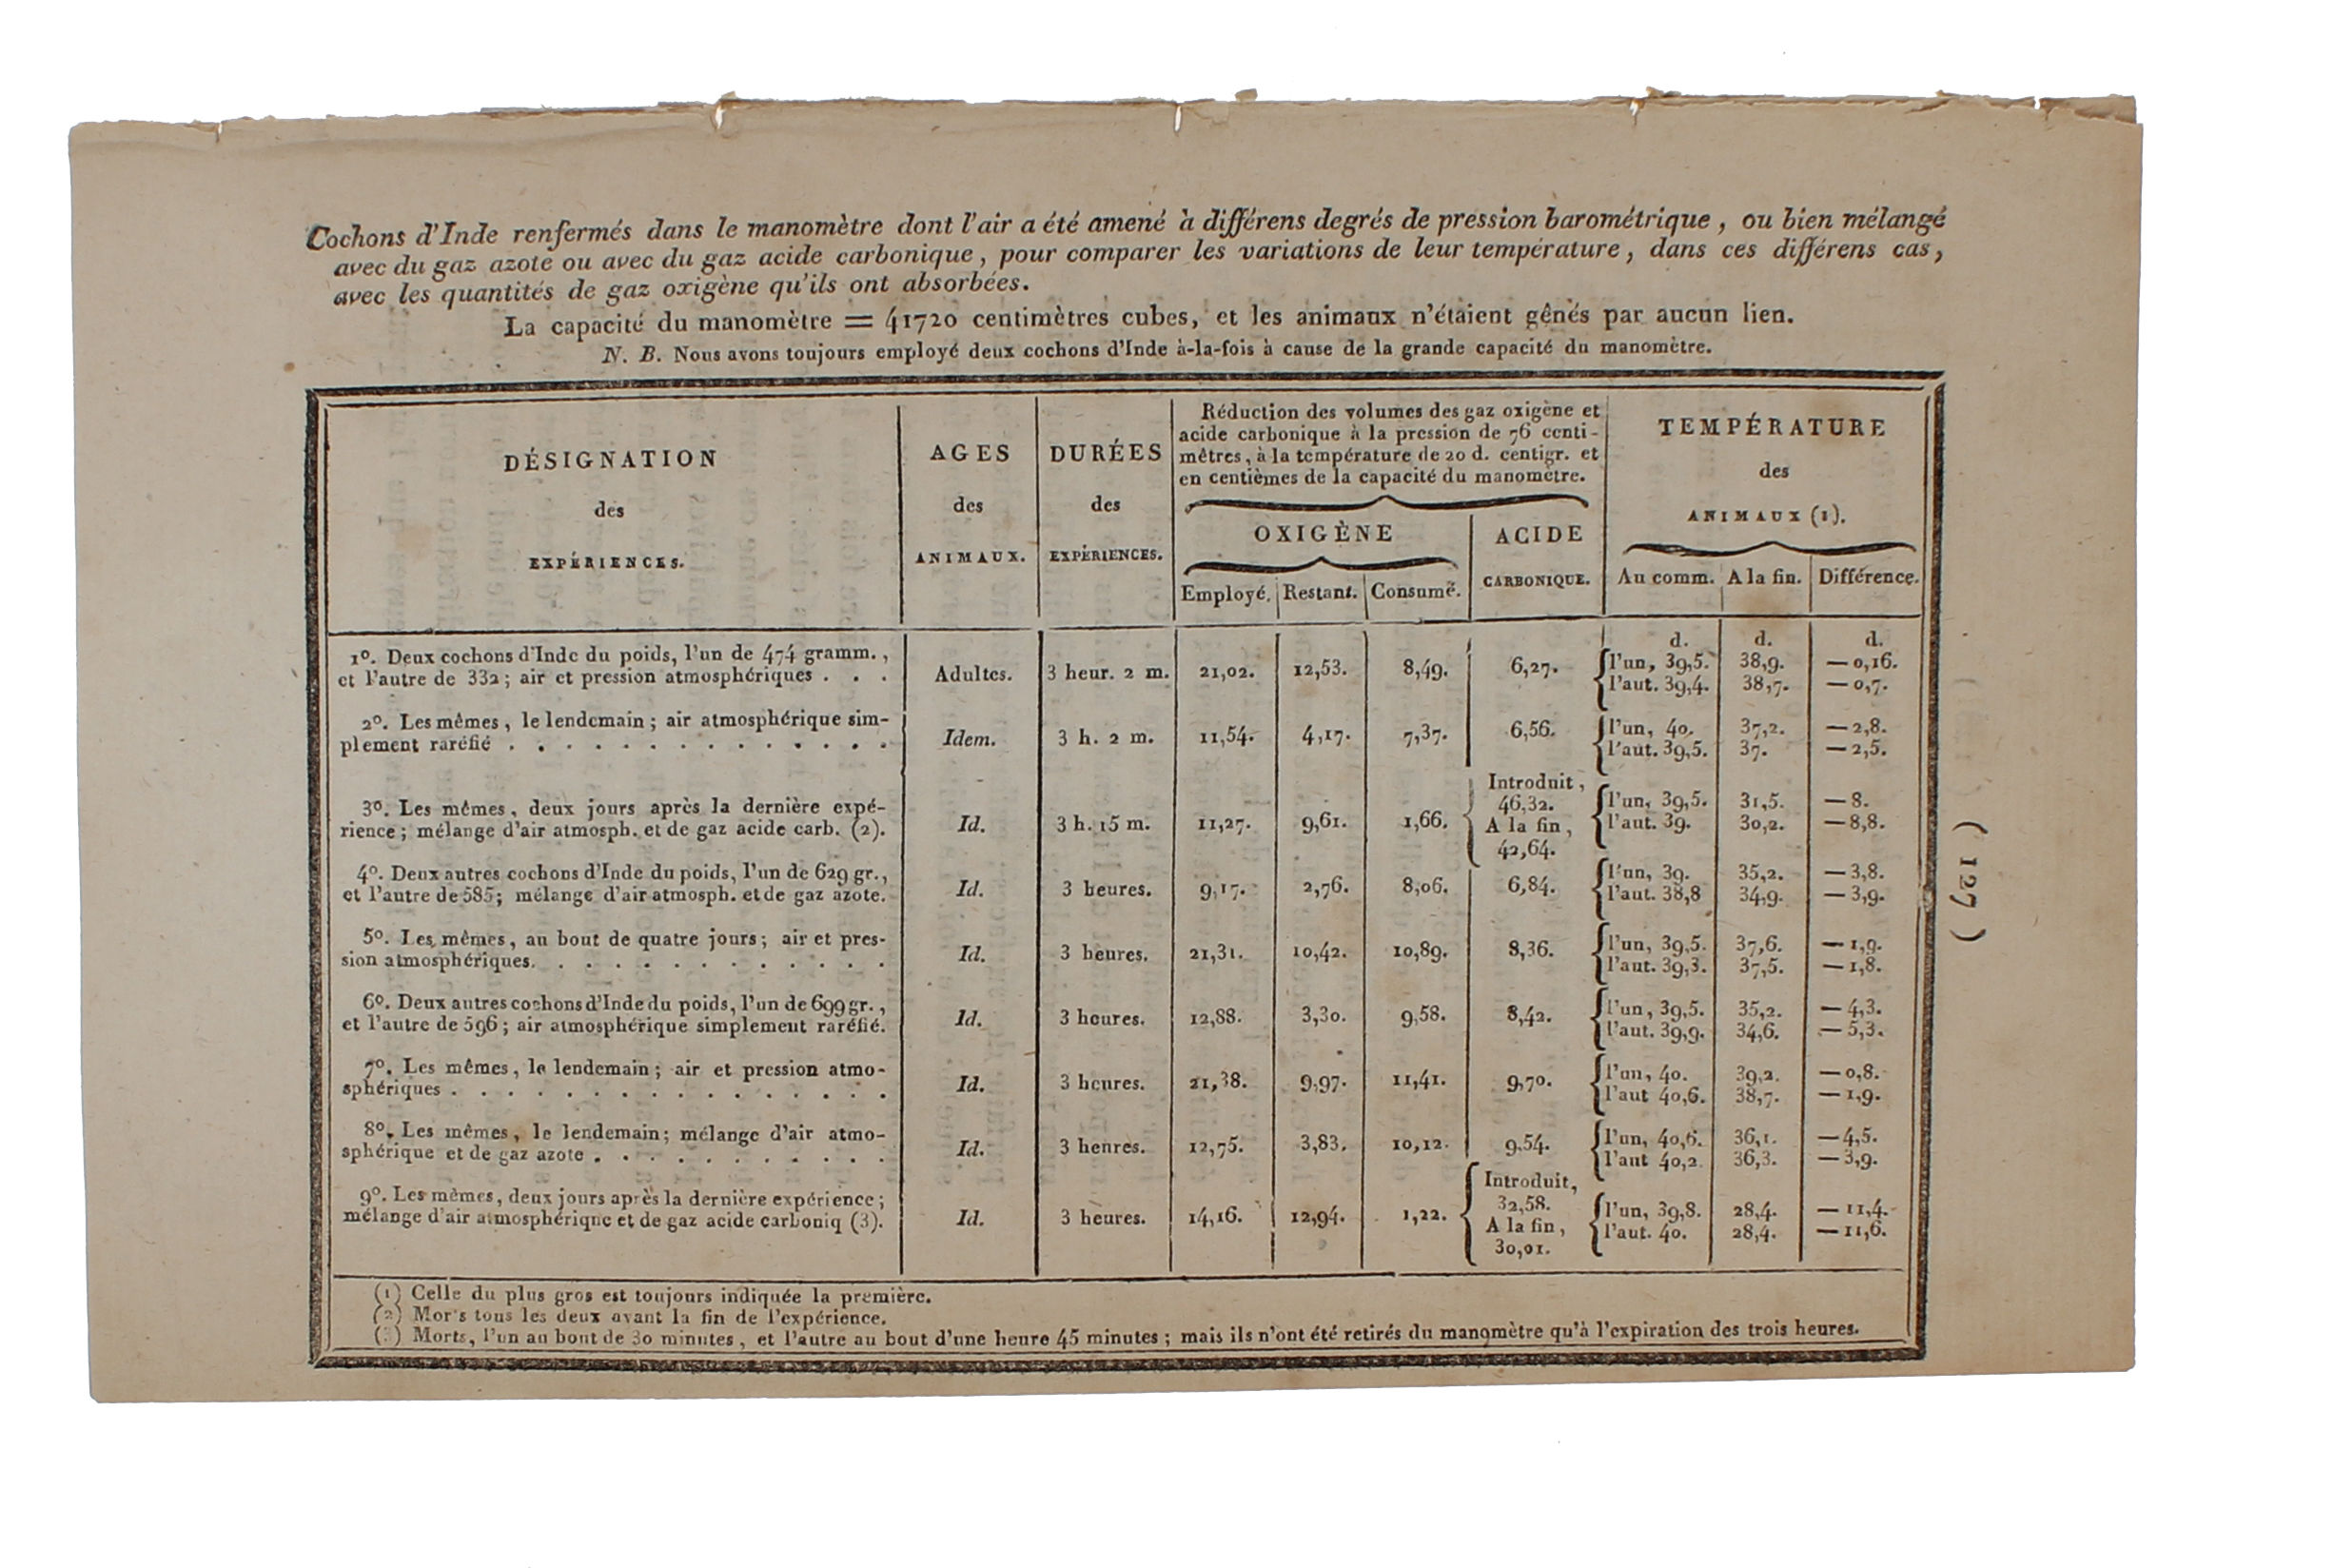 Cochons d'Inde renfermés dans le manomètre dont l'air a été amené à différens degrés de pression barométrique, ou bien mélangé
avec du gaz azote ou avec du gaz acide carbonique, pour comparer les variations de leur température, dans ces différens cas,
avec les quantités de gaz oxigène qu'ils ont absorbées.
La capacité du manomètre = 41720 centimètres cubes, et les animaux n'étaient gênés par aucun lien.
N. B. Nous avons toujours employé deux cochons d'Inde à-la-fois à cause de la grande capacité du manomètre.
DÉSIGNATION
des
EXPÉRIENCES.
AGES
des
ANIMAUX.
DURÉES
des
EXPÉRIENCES.
Réduction des volumes des gaz oxigène et
acide carbonique à la pression de 76 centi-
mètres, à la température de 20 d. centigr. et
en centièmes de la capacité du manomètre.
OXIGÈNE
Employé. Restant. Consumé.
ACIDE
CARBONIQUE.
TEMPÉRATURE
des
ANIMAUX (1).
Au comm. A la fin. Différence.
d. d. d.
1º. Deux cochons d'Inde du poids, l'un de 474 gramm.,
et l'autre de 332; air et pression atmosphériques . . .
Adultes. 3 heur. 2 m. 21,02. 12,53. 8,49. 6,27.
l'un, 39,5. 38,9. — 0,16.
l'aut. 39,4. 38,7. — 0,7.
2º. Les mêmes, le lendemain; air atmosphérique sim-
plement raréfié . . . . . . . . . . . . . .
Idem. 3 h. 2 m. 11,54. 4,17. 7,37. 6,56.
l'un, 40. 37,2. — 2,8.
l'aut. 39,5. 37. — 2,5.
3º. Les mêmes, deux jours après la dernière expé-
rience; mélange d'air atmosph. et de gaz acide carb. (2).
Id. 3 h. 15 m. 11,27. 9,61. 1,66.
Introduit,
46,32.
A la fin,
42,64.
l'un, 39,5. 31,5. — 8.
l'aut. 39. 30,2. — 8,8.
4º. Deux autres cochons d'Inde du poids, l'un de 629 gr.,
et l'autre de 585; mélange d'air atmosph. et de gaz azote.
Id. 3 heures. 9,17. 2,76. 8,06. 6,84.
l'un, 39. 35,2. — 3,8.
l'aut. 38,8 34,9. — 3,9.
5º. Les mêmes, au bout de quatre jours; air et pres-
sion atmosphériques. . . . . . . . . . . . .
Id. 3 heures. 21,31. 10,42. 10,89. 8,36.
l'un, 39,5. 37,6. — 1,9.
l'aut. 39,3. 37,5. — 1,8.
6º. Deux autres cochons d'Inde du poids, l'un de 699 gr.,
et l'autre de 596; air atmosphérique simplement raréfié.
Id. 3 heures. 12,88. 3,30. 9,58. 8,42.
l'un, 39,5. 35,2. — 4,3.
l'aut. 39,9. 34,6. — 5,3.
7º. Les mêmes, le lendemain; air et pression atmo-
sphériques . . . . . . . . . . . . . . . .
Id. 3 heures. 21,38. 9,97. 11,41. 9,70.
l'un, 40. 39,2. — 0,8.
l'aut 40,6. 38,7. — 1,9.
8º. Les mêmes, le lendemain; mélange d'air atmo-
sphérique et de gaz azote . . . . . . . . . . .
Id. 3 heures. 12,75. 3,83. 10,12. 9,54.
l'un, 40,6. 36,1. — 4,5.
l'aut 40,2. 36,3. — 3,9.
9º. Les mêmes, deux jours après la dernière expérience;
mélange d'air atmosphérique et de gaz acide carboniq (3).
Id. 3 heures. 14,16. 12,94. 1,22.
Introduit,
32,58.
A la fin,
30,01.
l'un, 39,8. 28,4. — 11,4.
l'aut. 40. 28,4. — 11,6.
(1) Celle du plus gros est toujours indiquée la première.
(2) Morts tous les deux avant la fin de l'expérience.
(3) Morts, l'un au bout de 30 minutes, et l'autre au bout d'une heure 45 minutes; mais ils n'ont été retirés du manomètre qu'à l'expiration des trois heures.
( 127 )